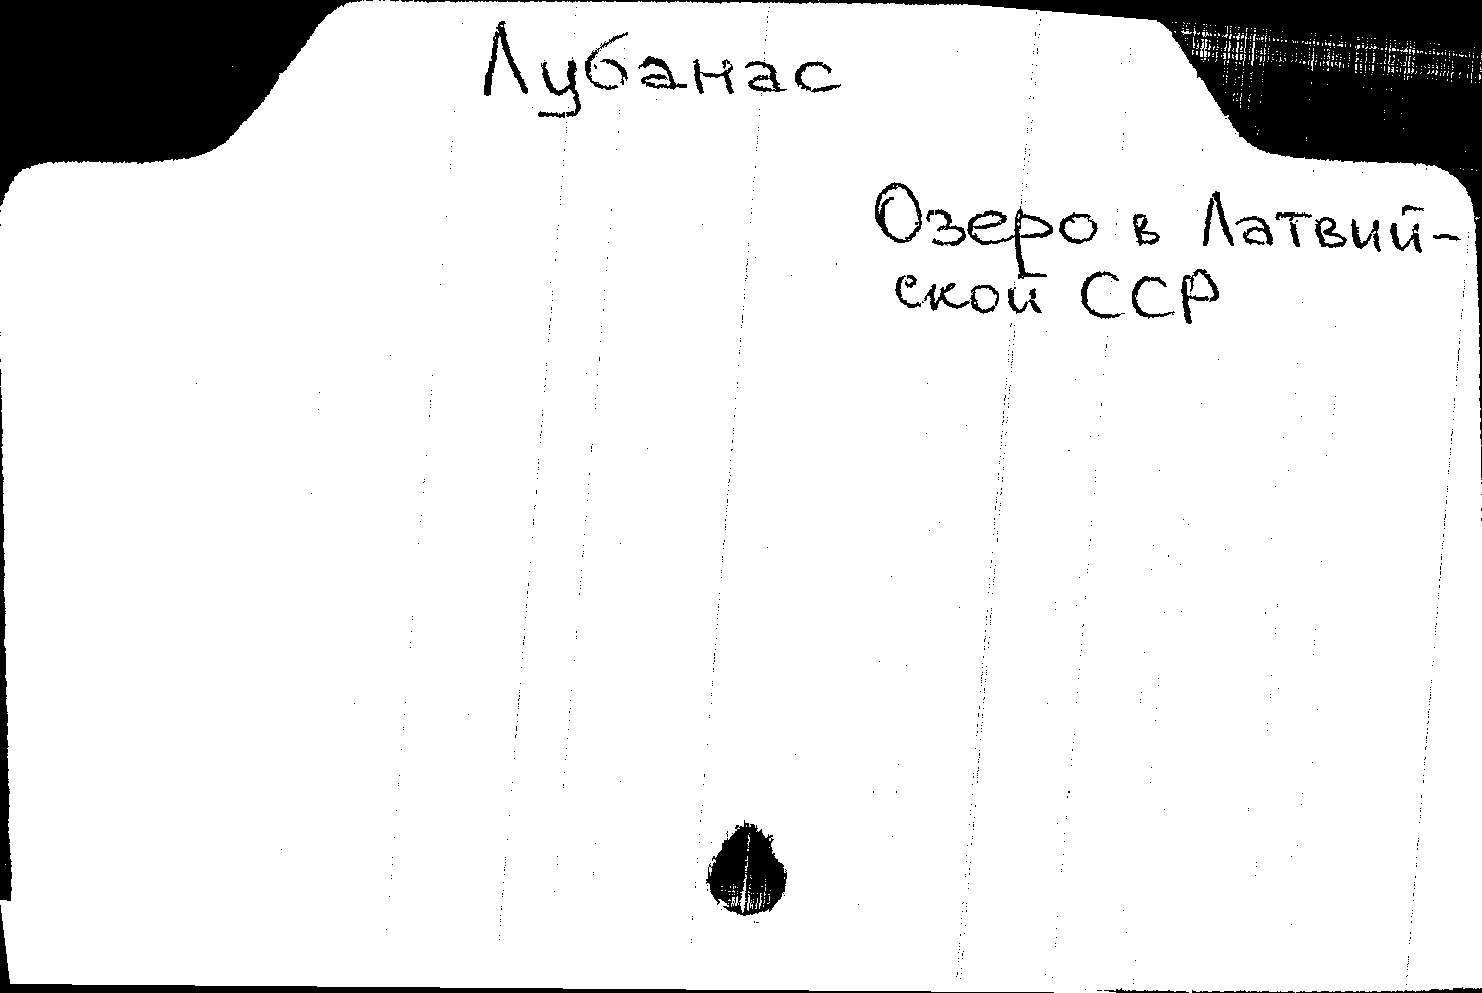 Лубанас
Озеро в Латвий-
ской ССР